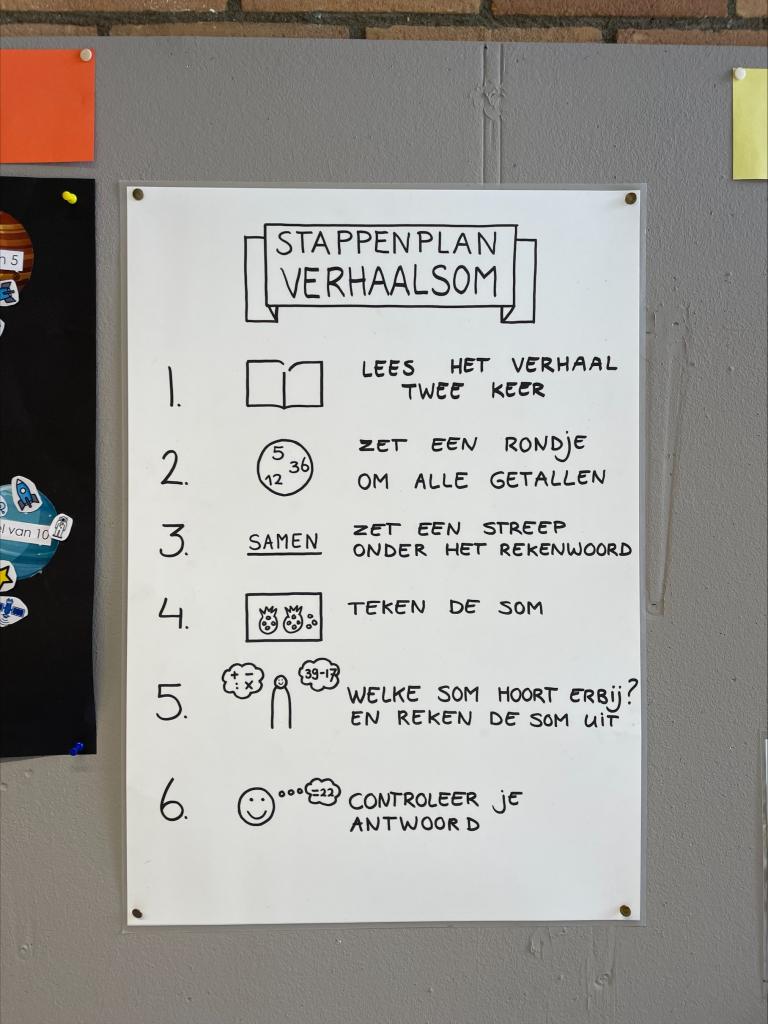 STAPPENPLAN
VERHAALSOM
1. LEES HET VERHAAL
TWEE KEER
2. 5 36 12 ZET EEN RONDJE
OM ALLE GETALLEN
3. SAMEN ZET EEN STREEP
ONDER HET REKENWOORD
4. TEKEN DE SOM
5. + - : x 39-17 WELKE SOM HOORT ERBIJ?
EN REKEN DE SOM UIT
6. =22 CONTROLEER JE
ANTWOORD
5
van 10